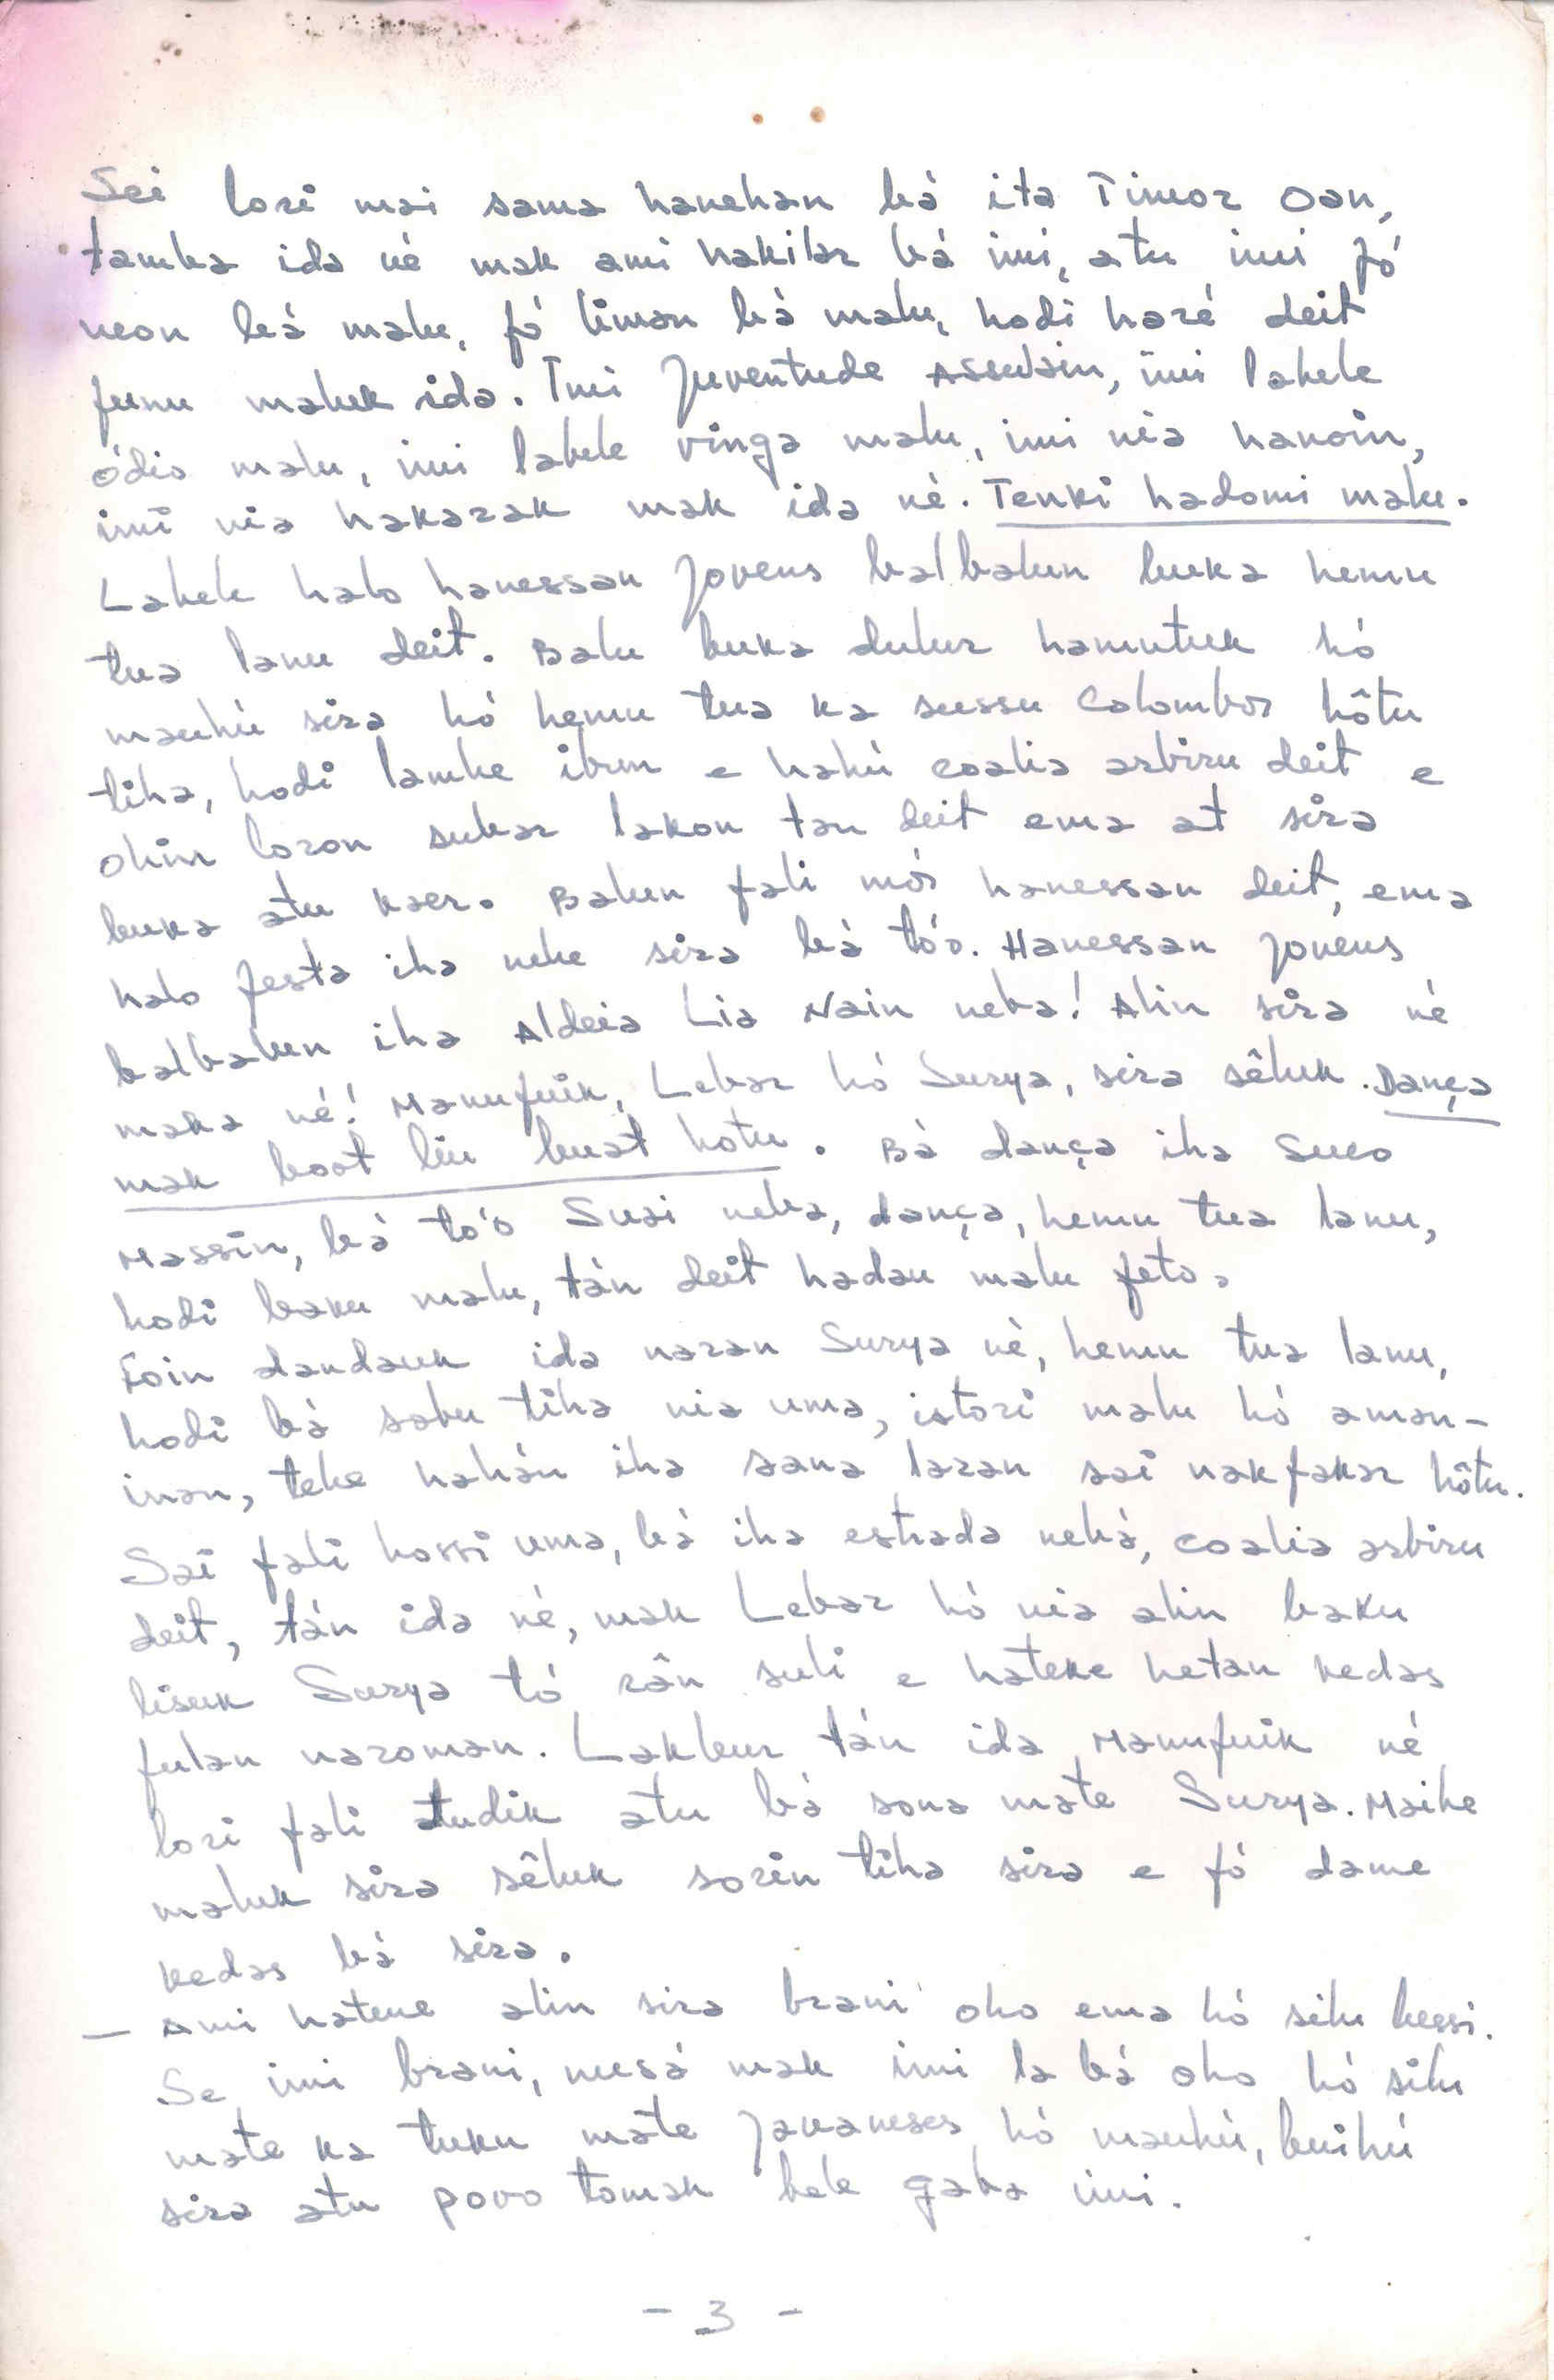 Sei lori mai sama hanehan bá ita Timor Oan,
tamba ida né mak ami hakilar bá imi, atu imi fó
neon bá malu, fó liman bá malu, hodi haré deit
funu maluk ida. Imi juventude Assulain, imi labele
ódio malu, imi labele vinga malu, imi nia hanoin,
imi nia hakarak mak ida né. Tenki hadomi malu.
Labele halo hanessan jovens balbalun buka hemu
tua lanu deit. Balu buka dulur hamutuk hó
mauhú sira hó hemu tua ka sussu Calombor hôtu
tiha, hodi lamhe ibun e hahú coalia arbiru deit e
ohin loron subar lakon tan deit ema at sira
buka atu kaer. Balun fali mós hanessan deit, ema
halo festa iha nebe sira bá tó'o. Hanessan jovens
balbalun iha Aldeia Lia Nain neba! Alin sira né
maka né! Manufuik, Lebar hó Surya, sira sêluk. Dança
mak boot liu buat hotu. Bá dança iha Suco
Massin, bá tó'o Suai neba, dança, hemu tua lanu,
hodi baku malu, tán deit hadau malu feto.
Foin dandauk ida naran Surya né, hemu tua lanu,
hodi bá sobu tiha nia uma, istori malu hó aman-
inan, tebe hahán iha sana laran sai nakfakar hôtu.
Sai fali hossi uma, bá iha estrada nebá, coalia arbiru
deit, tán ida né, mak Lebar hó nia alin baku
lisuk Surya tó rân suli e hateke hetan kedas
fulan naroman. Lakleur tán ida Manufuik né
lori fali tudik atu bá sona mate Surya. Maibe
maluk sira sêluk sorin tiha sira e fó dame
kedas bá sira.
— Ami hatene alin sira brani oho ema hó silu bessi.
Se imi brani, nusá mak imi la bá oho hó silu
mate ka tuku mate javaneses hó mauhú, buihú
sira atu povo tomak bele gaba imi.
- 3 -